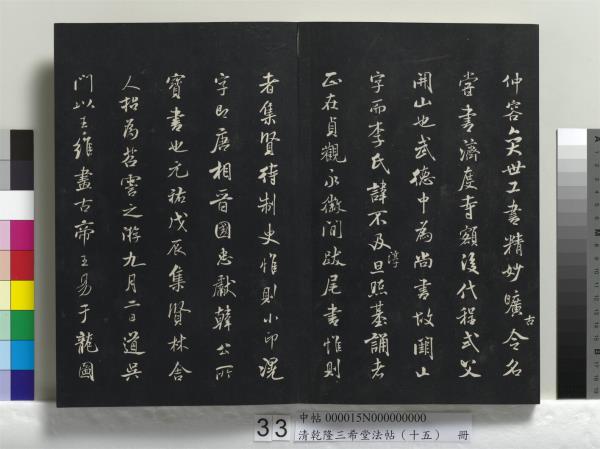 仲容奕世工書精妙曠古令名
嘗書濟度寺額後代程式父
開山也武德中為尚書故闕山
字而李氏諱不及淳旦照基誦者
正在貞觀永徽間跋尾書惟則
者集賢待制史惟則小印滉
字即唐相晉國忠獻韓公所
寶書也元祐戊辰集賢林舍
人招為苕霅之游九月二日道吳
門以王維畫古帝王易于龍圖
33
中帖 000015N000000000
清乾隆三希堂法帖（十五） 冊